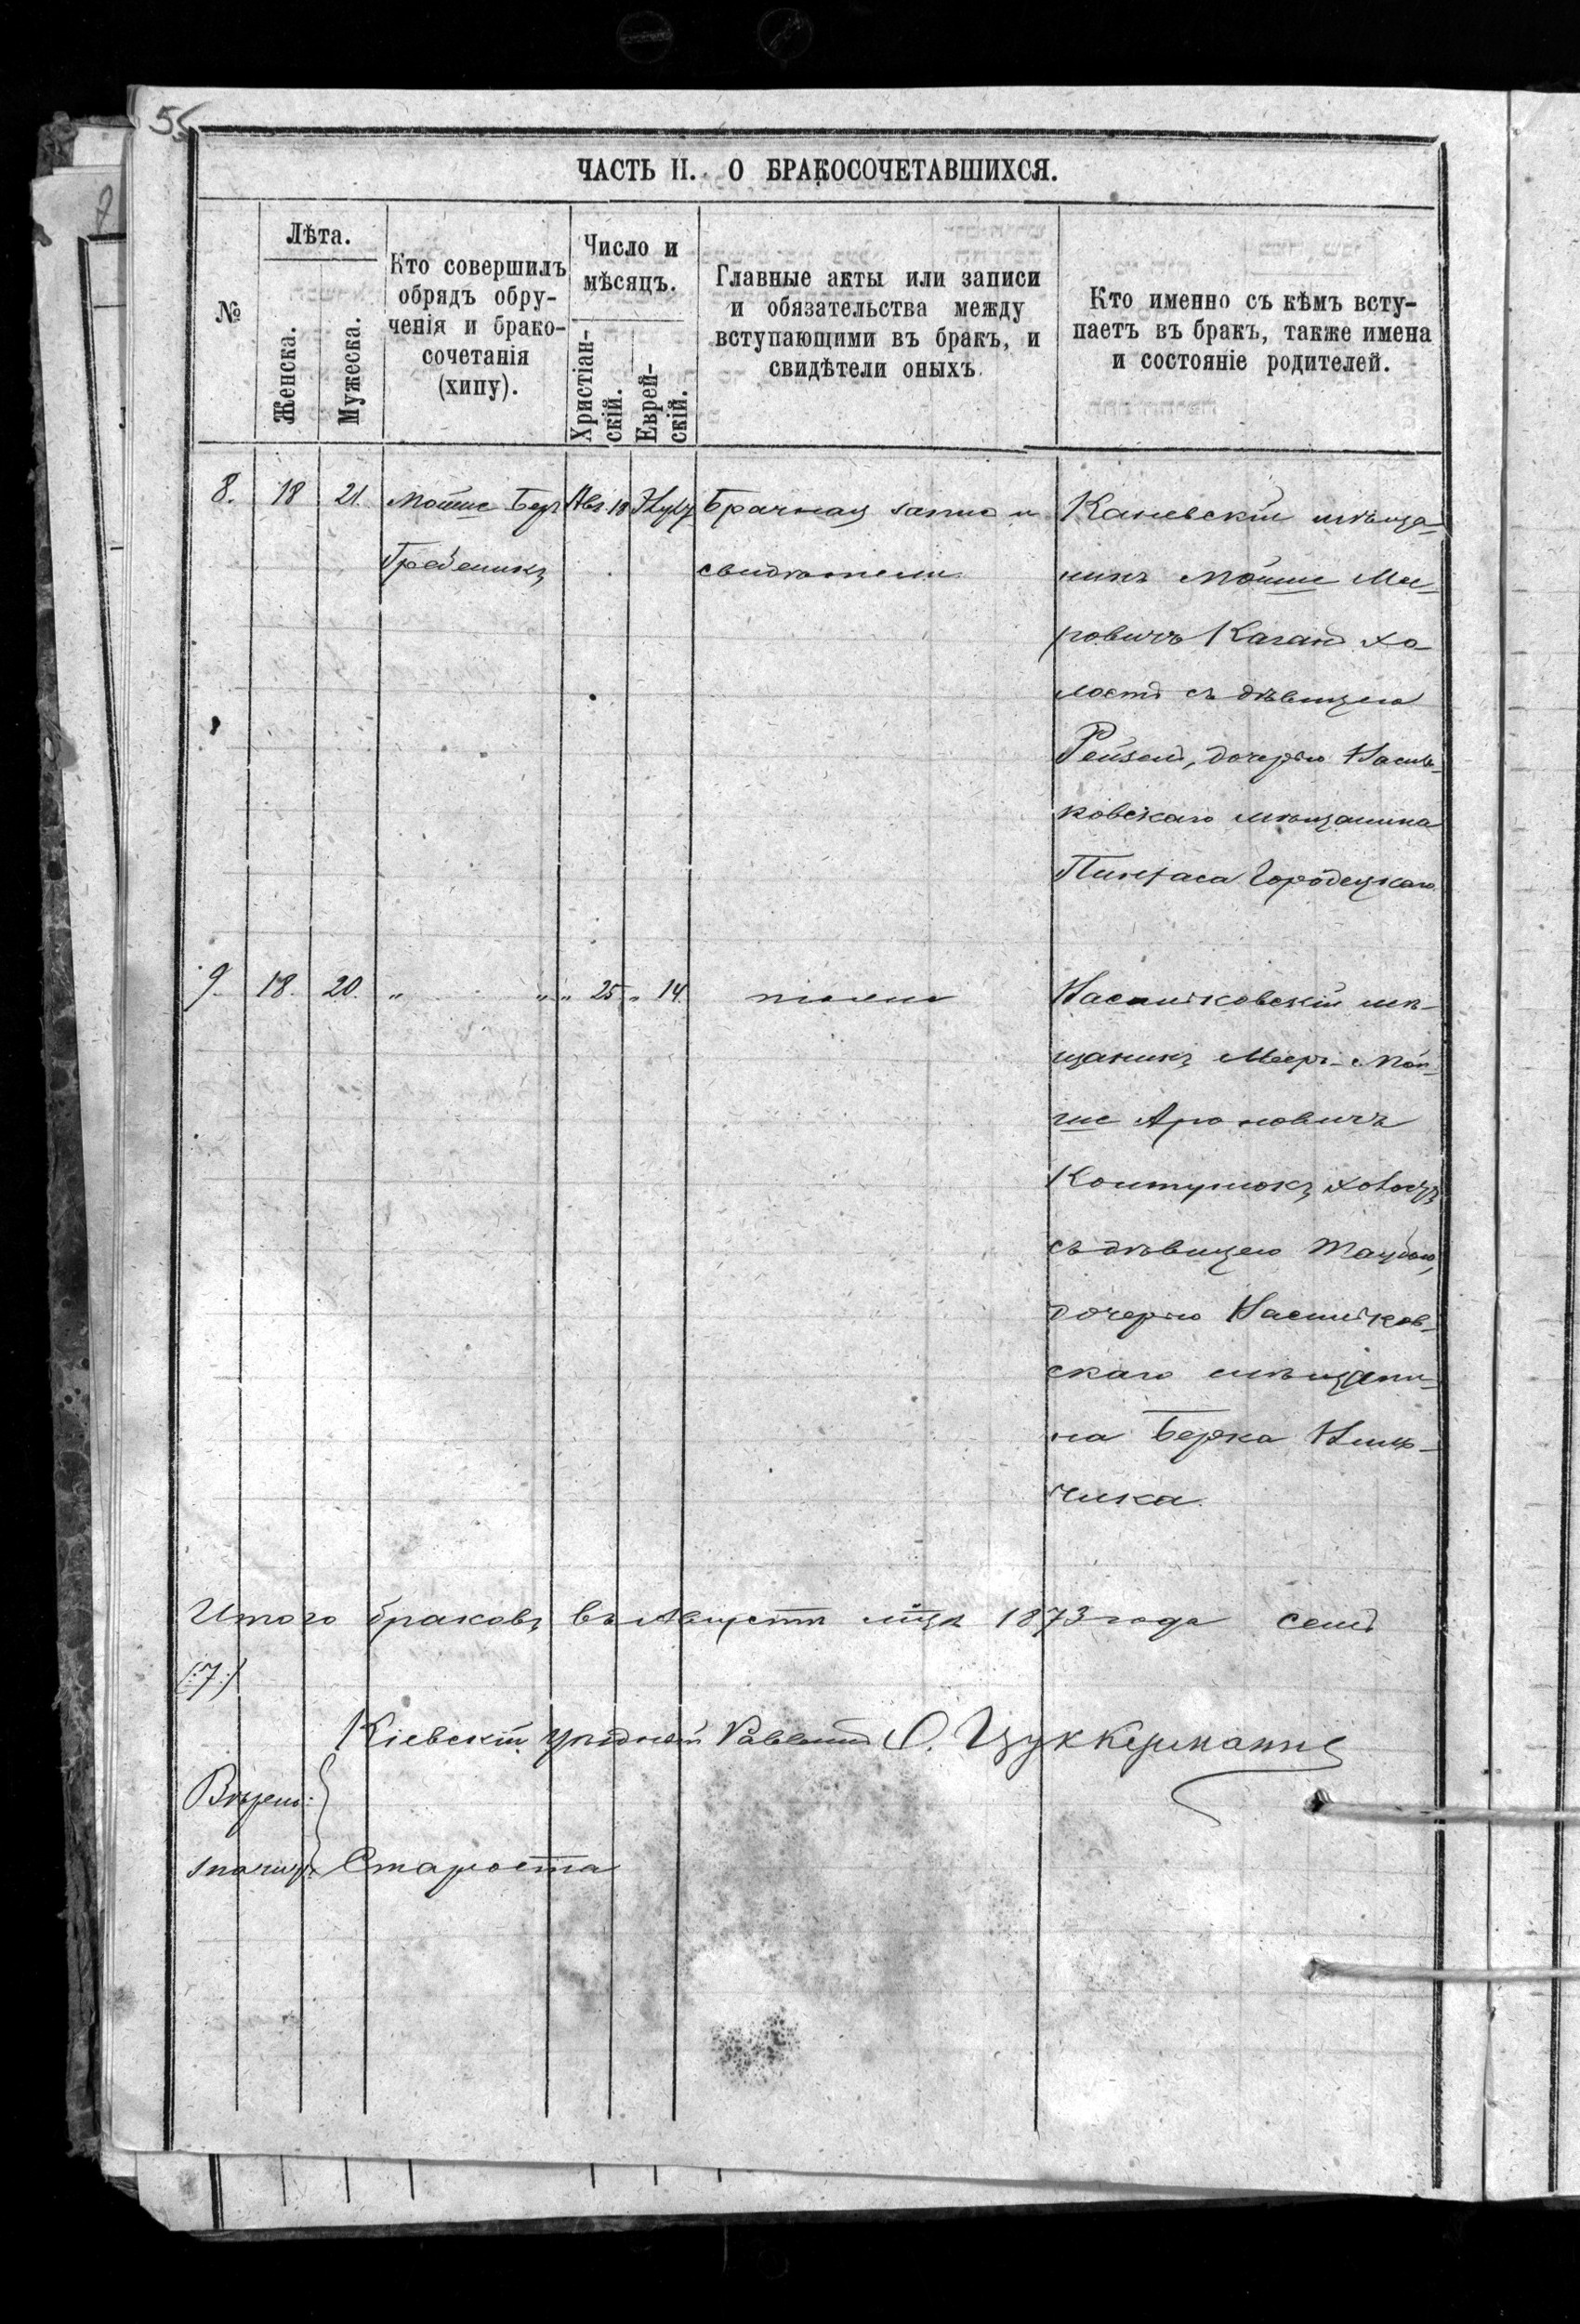 55
ЧАСТЬ II. О БРАКОСОЧЕТАВШИХСЯ.
№
Лѣта.
Женска.
Мужеска.
Кто совершилъ
обрядъ обру-
ченія и брако-
сочетанія
(хипу).
Число и
мѣсяцъ.
Христіан-
скій.
Еврей-
скій.
Главные акты или записи
и обязательства между
вступающими въ бракъ, и
свидѣтели оныхъ.
Кто именно съ кѣмъ всту-
паетъ въ бракъ, также имена
и состояніе родителей.
8. 18 21. Мойше Бер Авг. 18 Брачная запис и
Гребеникъ свидѣтели
Каневскій мѣща-
нинъ Мойше Ме-
ровичъ Каганъ хо-
лостъ съ дѣвицею
Рейзею, дочерью Василь-
ковскаго мѣщанина
Пинхаса Городецкаго.
9. 18. 20. " " " 25 " 14. тоже
Васильковскій мѣ-
щанинъ Меер-Мой-
ше Ароновичъ
холостъ
съ дѣвицею Таубою,
дочерью Васильков-
скаго мѣщани-
на Берка
чика.
Итого браковъ въ Августѣ мцѣ 1873 года семь
(:7:)
Кіевскій уѣздный Раввинъ Цуккерманъ
Староста